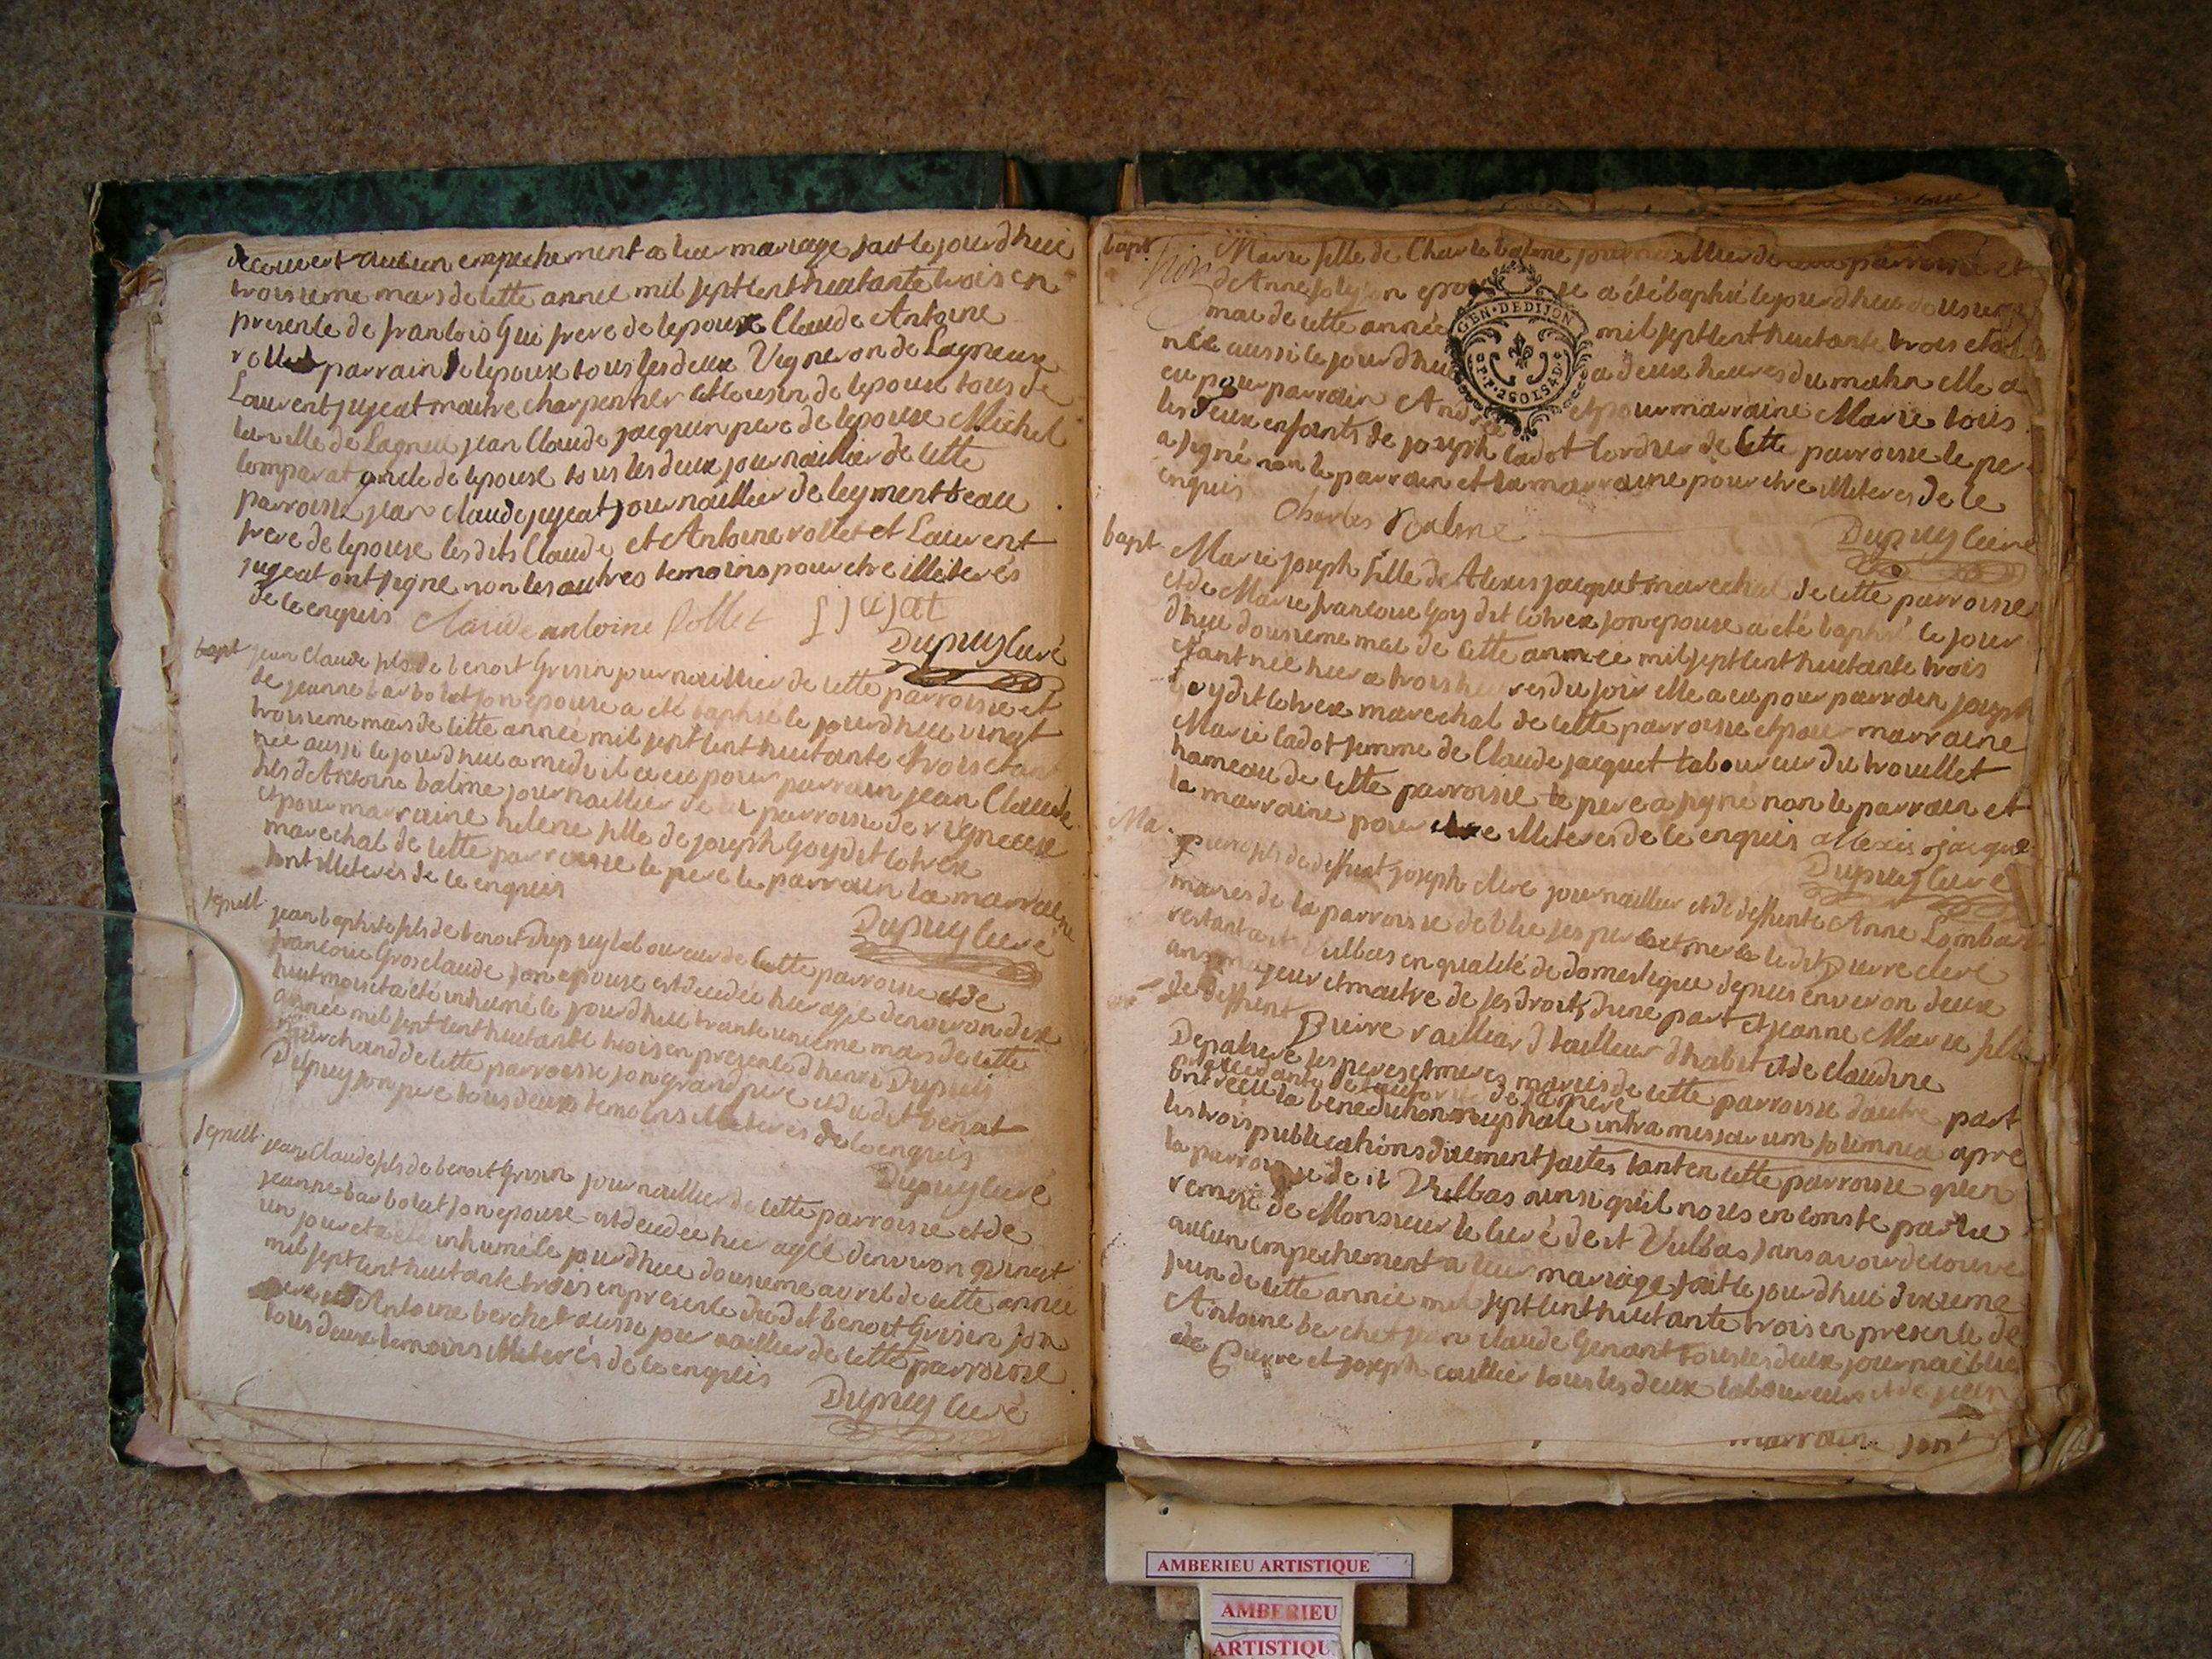 decouvert aucun empechement a leur mariage fait le jourdhui
troisieme mars de cette année mil sept cent huitante trois en
presence de francois Gui frere de lepoux Claude Antoine
rollet parrain de lepoux tous les deux Vigneron de Lagnieux
Laurent jujeat maitre charpentier et cousin de lepouse tous de
la ville de Lagnieu jean Claude jacquin pere de lepouse Michel
comparat oncle de lepouse tous les deux journaillier de cette
parroisse jean claude jujeat journaillier de leyment beau
frere de lepouse lesdits Claude et Antoine rollet et Laurent
jujeat ont signé non les autres temoins pour etre illiterés
de ce enquis Claude antoine Rollet
Dupuy curé
bapt jean Claude fils de benoit Grisin journaillier de cette parroisse et
de jeanne barbolat son epouse a été baptisé le jourdhui vingt
troisieme mars de cette année mil sept cent huitante trois etant
née aussi le jourdhui a midi il a eu pour parrain jean Claude
fils de Antoine balme journaillier de la parroisse de rigneux
et pour marraine helene fille de joseph Goy dit cotrex
marechal de cette parroisse le pere le parrain la marraine
sont illiterés de ce enquis
Dupuy curé
sepult jean baptiste fils de benoit Dupuy laboureur de cette parroisse et de
francoise Grosclaude son epouse est decedée hier agée denviron dix
huit mois et a été inhumé le jourdhui trente unieme mars de cette
année mil sept cent huitante trois en presence dhenri Dupuy
marchand de cette parroisse son grand pere et dudit benoit
Dupuy son pere tous deux temoins illiterés de ce enquis
Dupuy curé
sepult jean Claude fils de benoit Grisin journaillier de cette parroisse et de
jeanne barbolat son epouse est decedée hier agée denviron vingt
un jour et a été inhumé le jourdhui dousieme avril de cette année
mil sept cent huitante trois en presence dudit benoit Grisin son
pere et Antoine berchet aussi journaillier de cette parroisse
tous deux temoins illiterés de ce enquis
Dupuy curé
bapt Marie fille de Charle balme journaillier de cette parroisse et
de Anne joly son epouse a été baptisé le jourdhui dousieme
mai de cette année mil sept cent huitante trois etant
née aussi le jourdhui a deux heures du matin elle a
eu pour parrain André et pour marraine Marie tous
les deux enfants de joseph cadot cordier de cette parroisse le pere
a signé non le parrain et la marraine pour etre illiterés de ce
enquis
Charles Balme
Dupuy curé
GEN. DE DIJON
bapt Marie joseph fille de Alexis jacquet marechal de cette parroisse
et de Marie francoise Goy dit cotrex son epouse a été baptisé le jour
dhui dousieme mai de cette année mil sept cent huitante trois
etant née hier a trois heures du soir elle a eu pour parrain joseph
Goy dit cotrex marechal de cette parroisse et pour marraine
Marie cadot femme de Claude jacquet laboureur du trouillet
hameau de cette parroisse le pere a signé non le parrain et
la marraine pour etre illiterés de ce enquis alexis jacque
Dupuy curé
Ma. Pierre fils de deffunt joseph clere journaillier et de deffunte Anne Lombar
mariés de la parroisse de ses pere et mere le dit Pierre clere
restant a st Vulbas en qualité de domestique depuis environ deux
ans majeur et maitre de ses droits dune part et jeanne Marie fille
de deffunt Pierre vaillier tailleur dhabit et de claudine
ses peres et meres mariés de cette parroisse dautre part
ont recu la benediction nuptiale intra missarum solemnia apre
les trois publications duement faites tant en cette parroisse quen
la parroisse de st Vulbas ainsi quil nous en conste par la
remise de Monsieur le curé de st Vulbas sans avoir decouve
aucun empechement a leur mariage fait le jourdhui dixieme
juin de cette année mil sept cent huitante trois en presence de
Antoine berchet jean claude Genant tous les deux journaillier
de Pierre et joseph caillier tous les deux laboureur et de jean
marraine sont
AMBERIEU ARTISTIQUE
AMBERIEU
ARTISTIQU